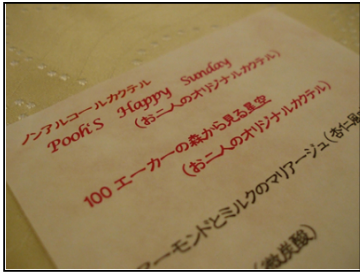 ノンアルコールカクテル
Pooh'S Happy Sunday
(お二人のオリジナルカクテル)
100エーカーの森から見る星空
(お二人のオリジナルカクテル)
アーモンドとミルクのマリアージュ(杏仁
(微炭酸)